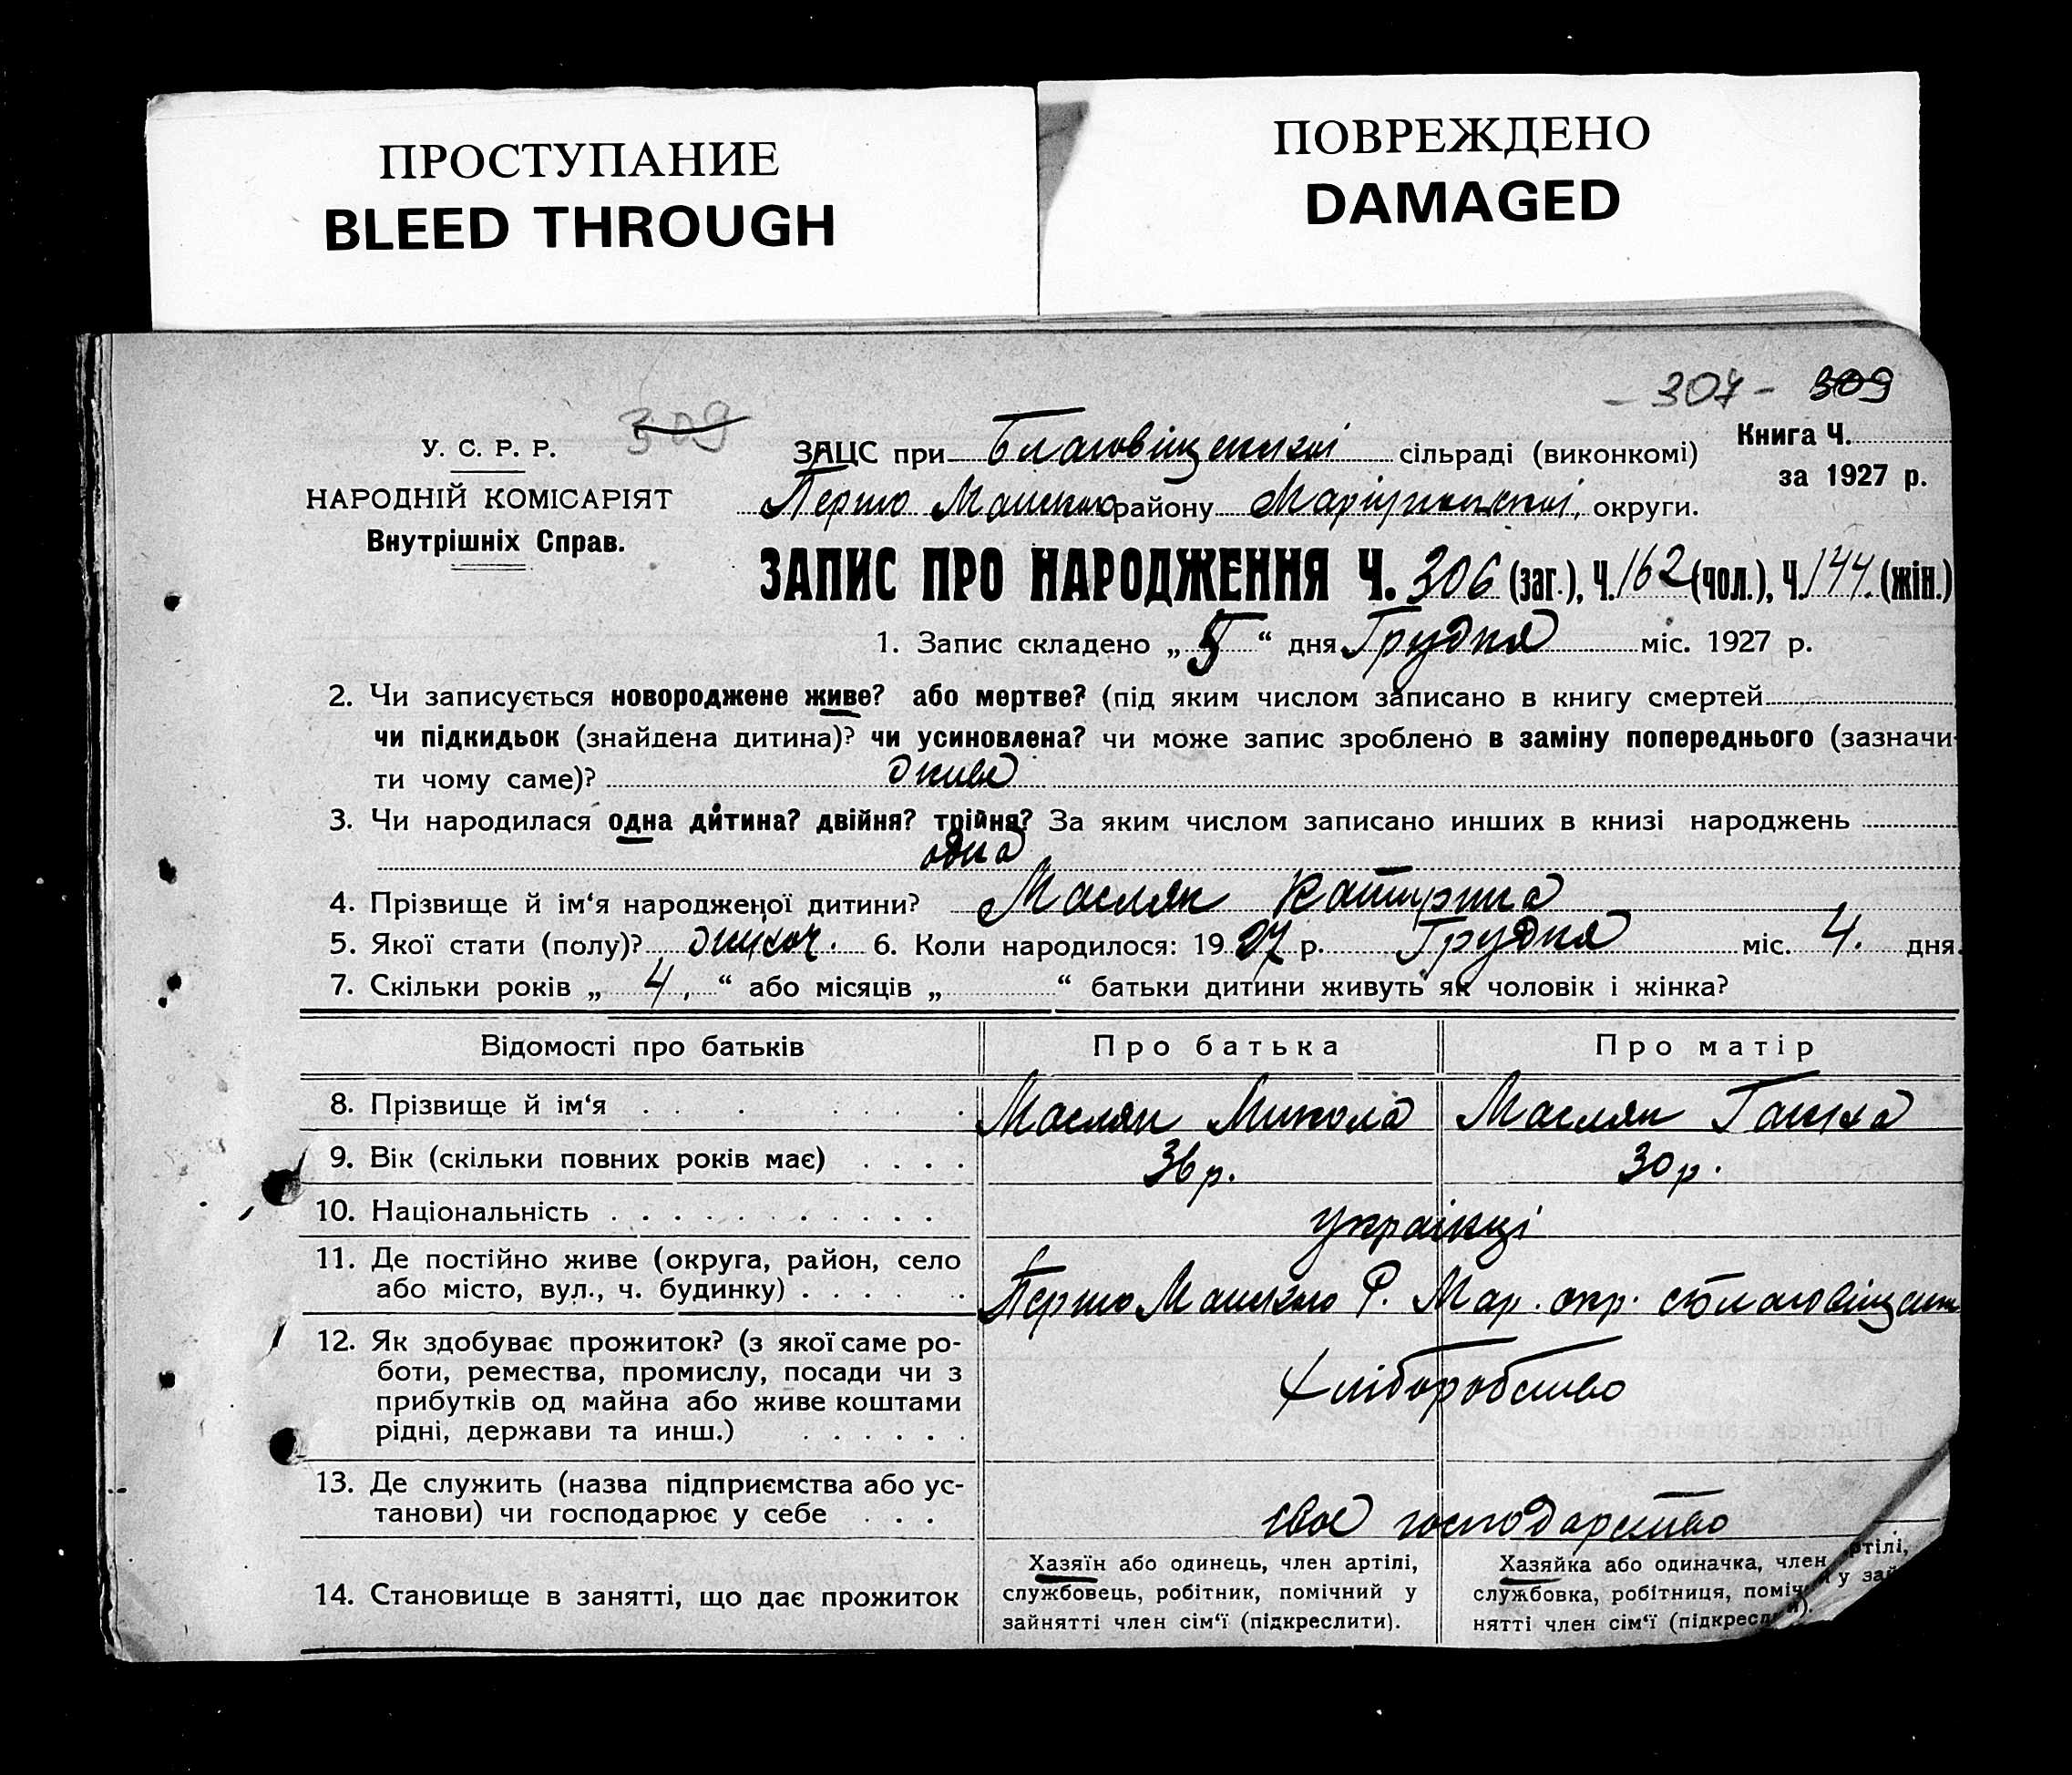 ПРОСТУПАНИЕ
BLEED THROUGH
ПОВРЕЖДЕНО
DAMAGED
- 307 - 309
309
У. С. Р. Р.
НАРОДНІЙ КОМІСАРІЯТ
Внутрішніх Справ.
ЗАЦС при Благовіщенській сільраді (виконкомі)
Книга Ч.
за 1927 р.
Першо Маиського району Маріупільської округи.
ЗАПИС ПРО НАРОДЖЕННЯ Ч. 306 (заг.), Ч. 162 (чол.), Ч. 144. (жін.)
1. Запис складено „ 5 “ дня Грудня міс. 1927 р.
2. Чи записується новороджене живе? або мертве? (під яким числом записано в книгу смертей
чи підкидьок (знайдена дитина)? чи усиновлена? чи може запис зроблено в заміну попереднього (зазначи-
ти чому саме)? живе
3. Чи народилася одна дитина? двійня? трійня? За яким числом записано инших в книзі народжень
одна
4. Прізвище й ім‘я народженої дитини? Масляк Катирина
5. Якої стати (полу)? жіноч. 6. Коли народилося: 1927 р. Грудня міс. 4. дня.
7. Скільки років „ 4, “ або місяців „ “ батьки дитини живуть як чоловік і жінка?
Відомості про батьків Про батька Про матір
8. Прізвище й ім‘я Масляк Микола Масляк Ганна
9. Вік (скільки повних років має) 36 р. 30 р.
10. Національність українці
11. Де постійно живе (округа, район, село
або місто, вул., ч. будинку) Першо Маиського Р. Мар. окр. с Благовіщен
12. Як здобуває прожиток? (з якої саме ро-
боти, ремества, промислу, посади чи з
прибутків од майна або живе коштами
рідні, держави та инш.) Хліборобство
13. Де служить (назва підприємства або ус-
танови) чи господарює у себе своє господарство
14. Становище в занятті, що дає прожиток
Хазяїн або одинець, член артілі,
службовець, робітник, помічний у
зайнятті член сім‘ї (підкреслити).
Хазяйка або одиначка, член артілі,
службовка, робітниця, поміч у зай
нятті член сім‘ї (підкресли).